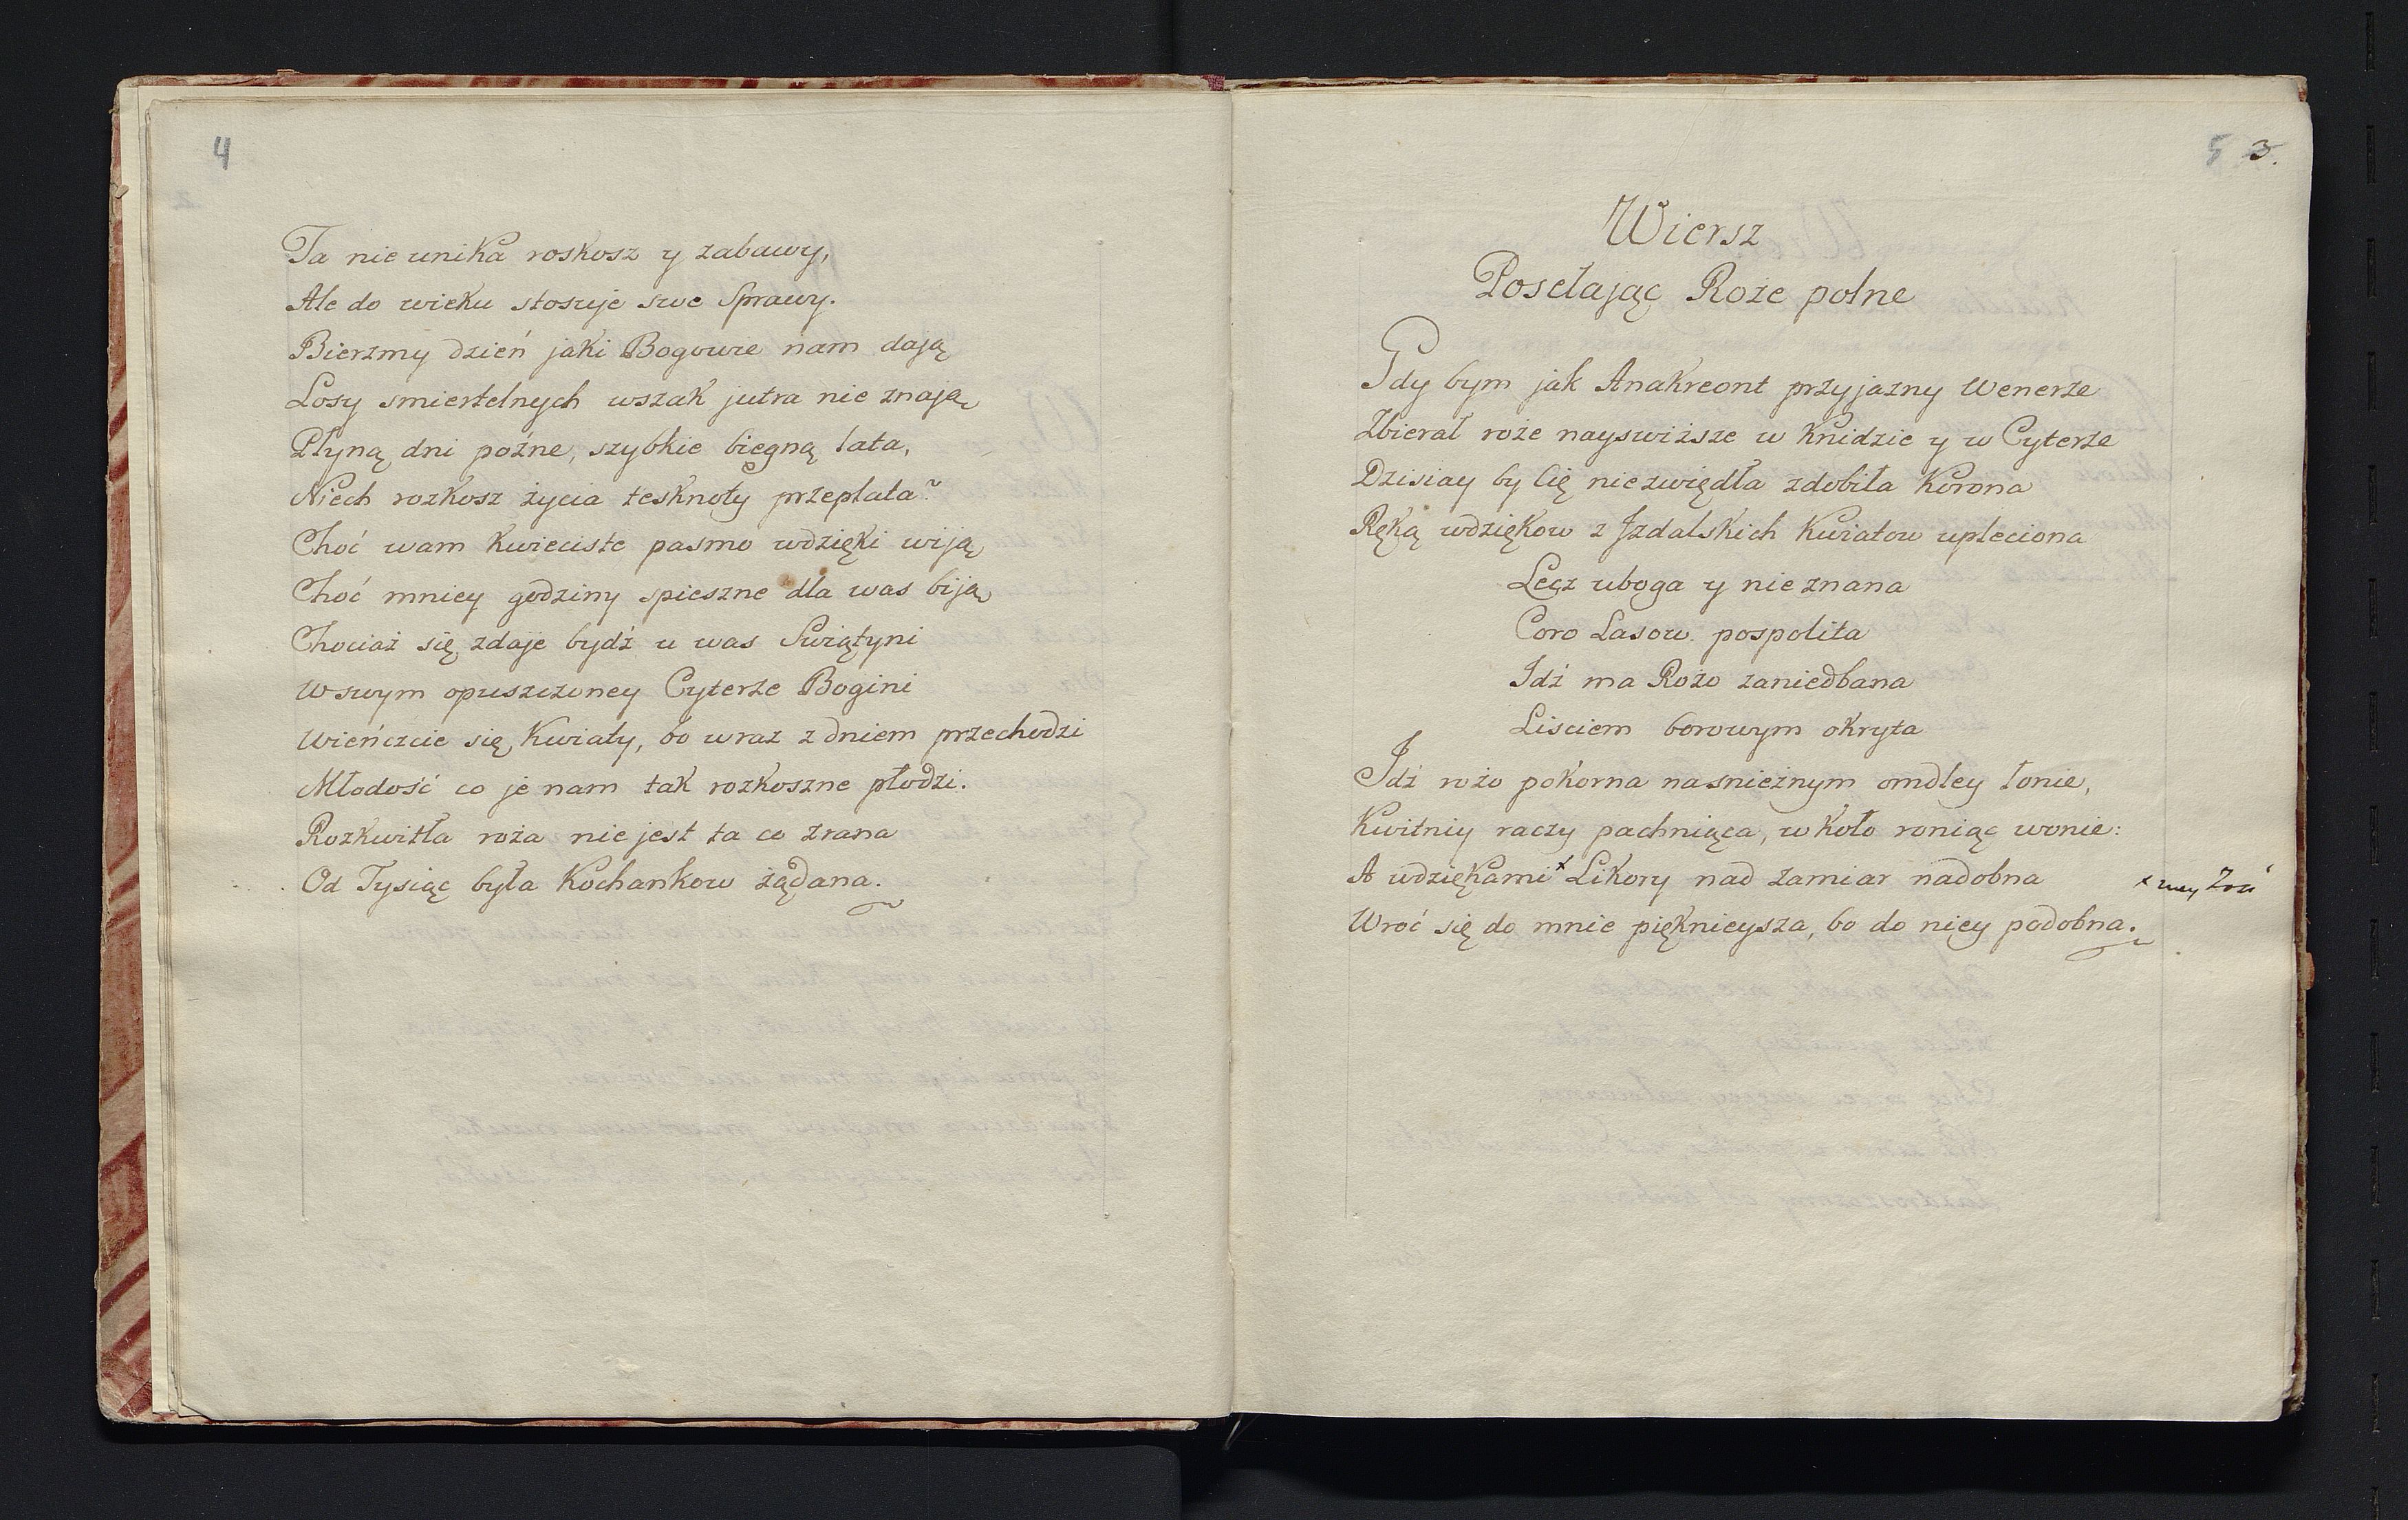 4
Ta nie unika roskosz y zabawy,
Ale do wieku stosuje swe Sprawy.
Bierzmy dzień jaki Bogowie nam dają
Losy smiertelnych wszak jutra nie znają
Płyną dni poźne, szybkie biegną lata,
Niech rozkosz życia tesknoty przeplata?
Choć wam kwieciste pasmo wdzięki wiją
Choć mniey godziny spieszne dla was biją
Chociaż się zdaje bydź u was Swiątyni
W swym opuszczoney Cyterze Bogini
Wieńczcie się kwiaty, bo wraz z dniem przechodzi
Młodość co je nam tak rozkoszne płodzi.
Rozkwitła roża nie jest ta co zrana
Od Tysiąc była Kochankow żądana.
5 3.
Wiersz
Posełając Roże polne
Gdy bym jak Anakreont przyjazny Wenerze
Zbierał roże nayswiższe w Knidzie y w Cyterze
Dzisiay by Cię niezwiędła zdobiła Korona
Ręką wdziękow z Jzdalskich Kwiatow upleciona
Lecz uboga y nie znana
Coro Lasow pospolita
Idź ma Rożo zaniedbana
Lisciem borowym okryta
Jdź rożo pokorna na snieżnym omdley łonie,
Kwitniy raczy pachniąca, w koło roniąc wonie:
A wdziękami x Likory nad zamiar nadobna
x mey Zosi
Wroć się do mnie pięknieysza, bo do niey podobna.